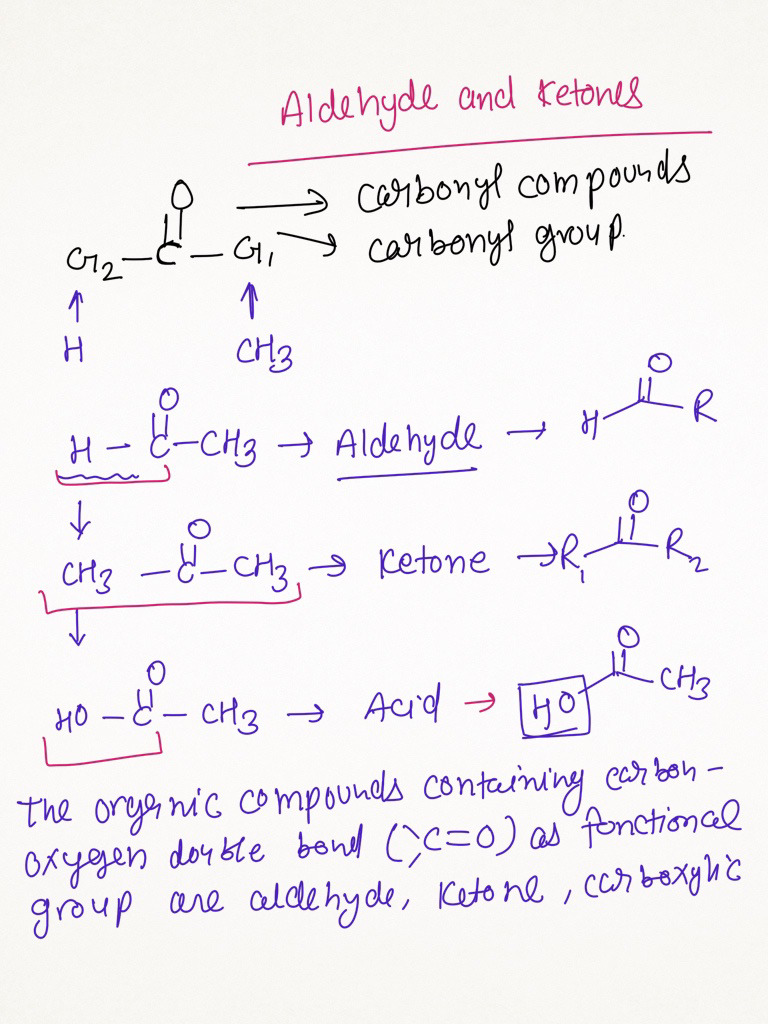 Aldehyde and Ketones
O → carbonyl compounds
G2 — C — G1 → carbonyl group.
↑ ↑
H CH3
O O
H — C — CH3 → Aldehyde → H R
↓ O O
CH3 — C — CH3 → Ketone → R1 R2
↓
O O
HO — C — CH3 → Acid → HO CH3
The organic compounds containing carbon –
oxygen double bond (>C=O) as fonctional
group are aldehyde, Ketone, carboxylic